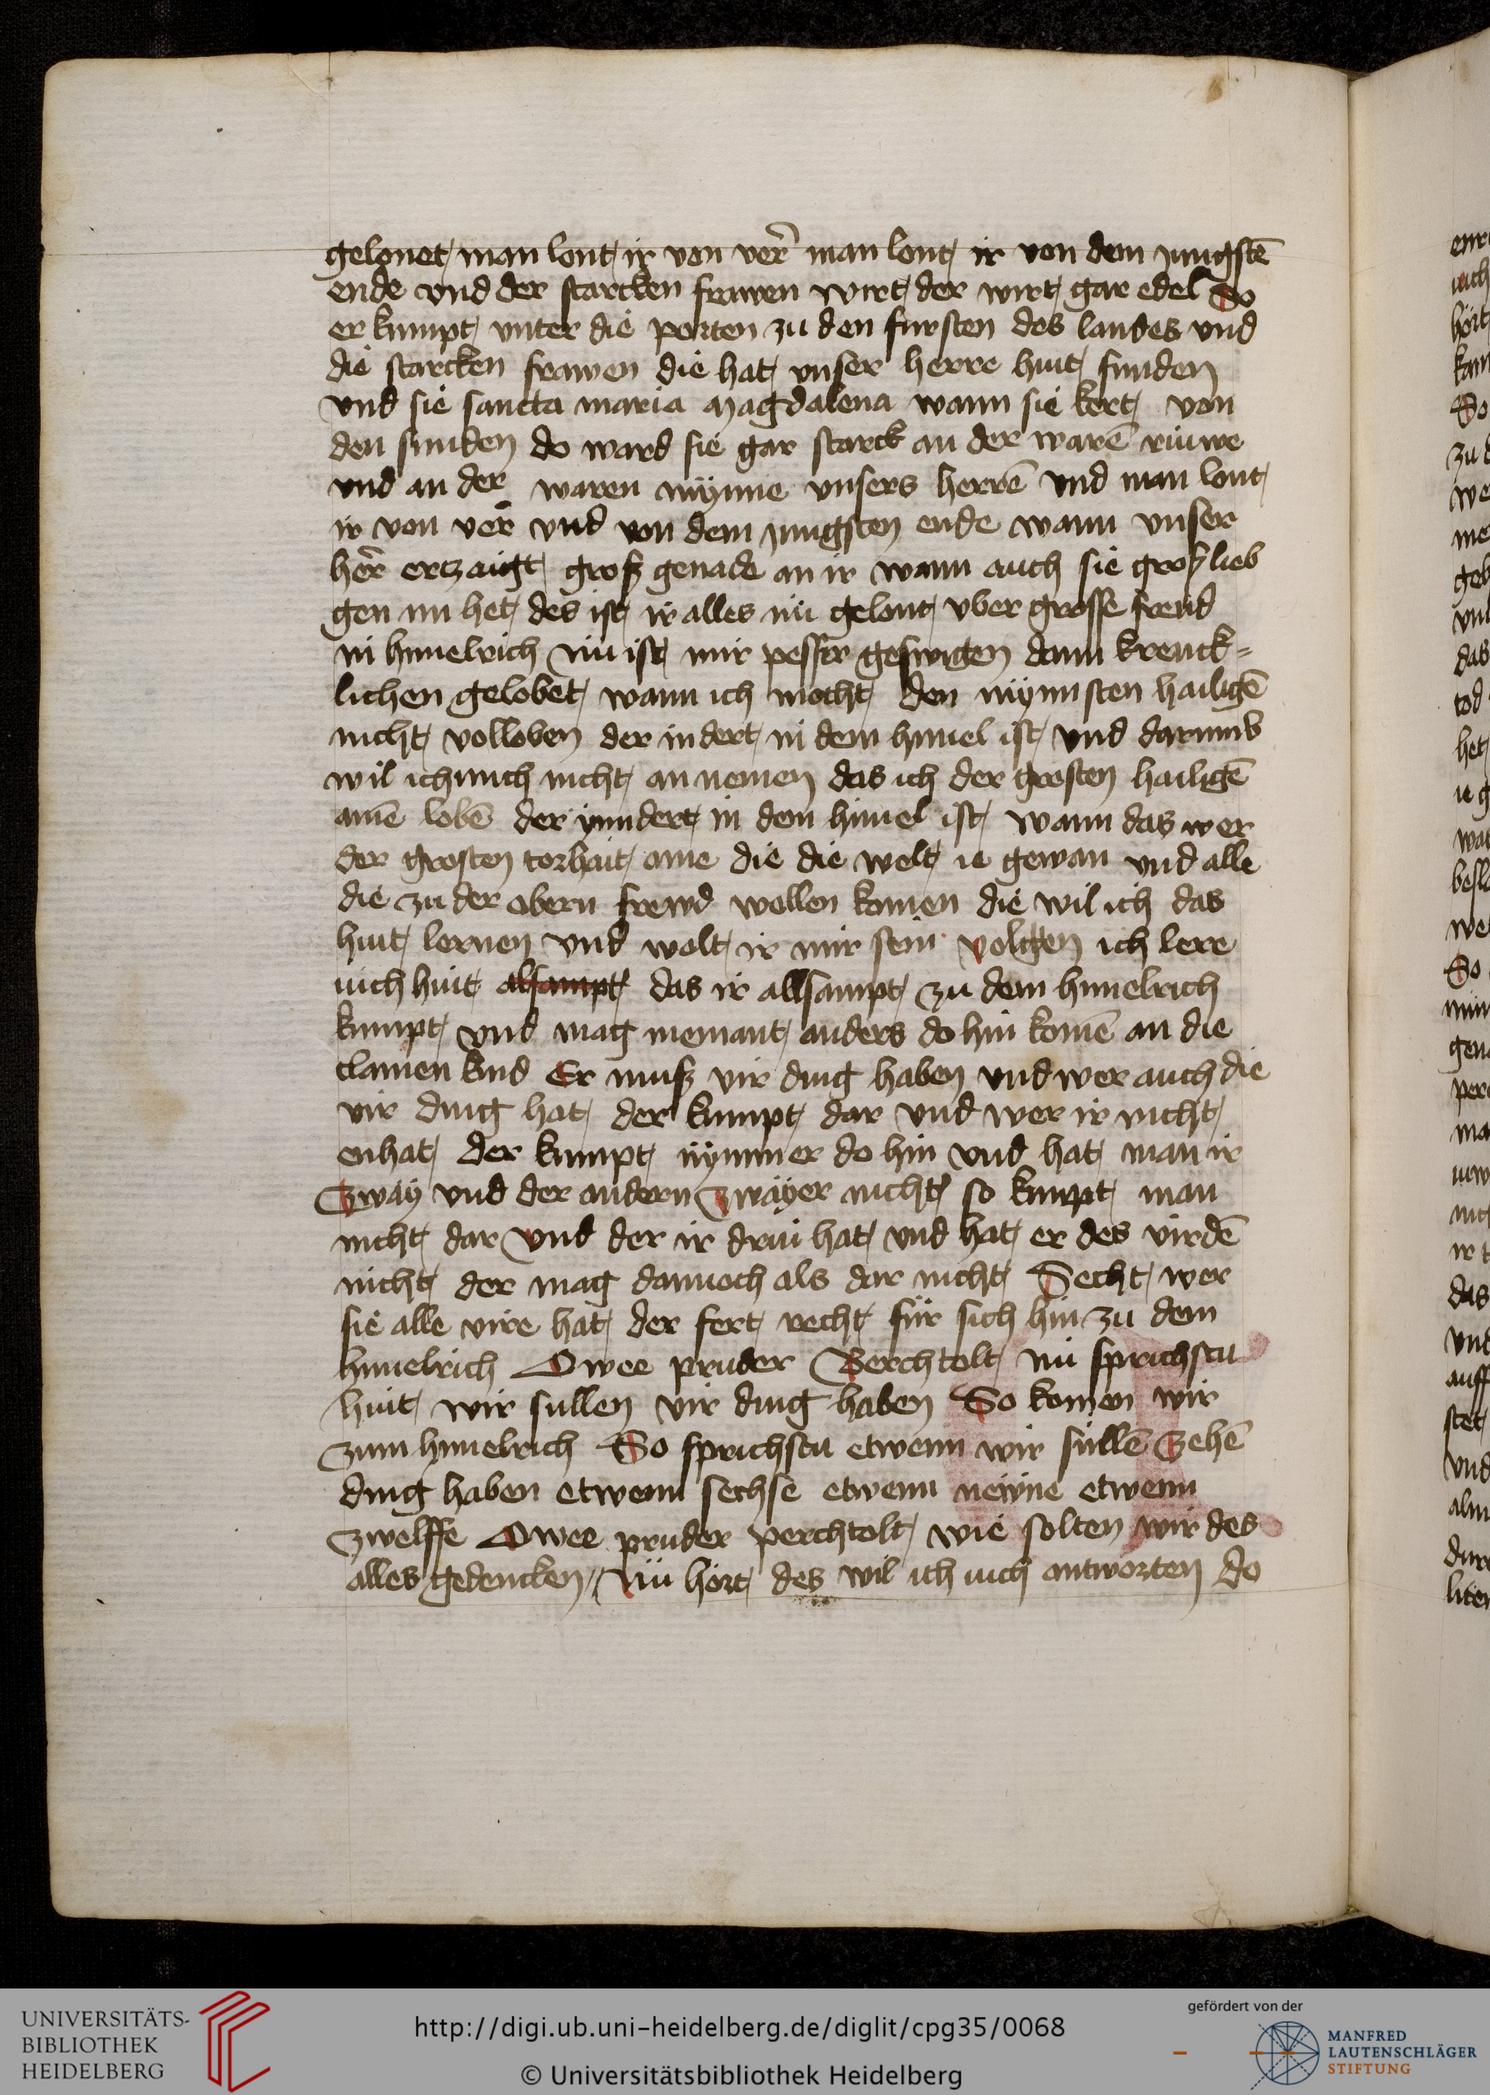 gelonet man lont ir von verr̄ man lont ir von dem jungstē
ende vnd der starcken frawen wirt der wirt gar edel So
er kumpt vnter die porten zu den fursten des landes vnd
die starcken frawen die hat vnser herre hiut funden
vnd sie sancta maria magdalena wann sie kert von
den sunden do ward sie gar starck an der warē riuwe
vnd an der waren mÿnne vnsers herrē vnd man lont
ir von ver̄ vnd von dem jungsten ende wann vnser
her̄ ertzaigt groß genade an ir wann auch sie groß lieb
gen im het des ist ir alles nü gelont vber grosse freüd
in himelrich Nü ist mir pesser geswigen dann krenck=
lichen gelobet wann ich mocht den mÿnnsten hailigē
nicht volloben der indert in dem himel ist vnd darumb
wil ich mich nicht an nemen das ich der grosten hailigē
ainē lobē der ÿnndert in dem himel ist wann das wer
der grosten torhait aine die die welt ie gewan vnd alle
die zu der obern frewd wollen komen die wil ich das
hiut lernen vnd wolt ir mir sein volgen ich lere
iuch hiut alsampt das ir allsampt zu dem himelrich
kumpt vnd mag niemant anders do hin komē an die
clainen kind Er muß vir ding haben vnd wer auch die
vir ding hat der kumpt dar vnd wer ir nicht
enhat der kumpt nÿmmer do hin vnd hat man ir
Zwaÿ vnd der andern Zwaÿer nicht so kumpt man
nicht dar vnd der ir driu hat vnd hat er des virdē
nicht der mag dannoch als dar nicht Secht wer
sie alle vire hat der fert recht für sich hin zu dem
himelrich Owee pruder Berchtolt nü sprichstu
hiut wir sullen vir ding haben So komen wir
zum himelrich So sprichstu etwenn wir süllē Zehē
ding haben etwenn sechse etwenn newne etwenn
zwelffe Owee pruder perchtolt wie solten wir des
alles gedencken Nü hört des wil ich iuch antworten do
UNIVERSITÄTS-
BIBLIOTHEK
HEIDELBERG
http://digi.ub.uni-heidelberg.de/diglit/cpg35/0068
© Universitätsbibliothek Heidelberg
gefördert von der
MANFRED
LAUTENSCHLÄGER
STIFTUNG